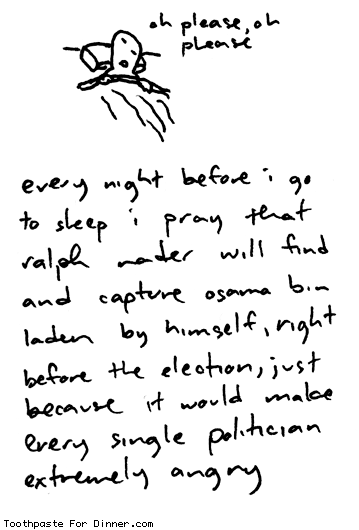 oh please, oh
please
every night before i go
to sleep i pray that
ralph nader will find
and capture osama bin
laden by himself, right
before the election, just
because it would make
every single politician
extremely angry
Toothpaste For Dinner.com